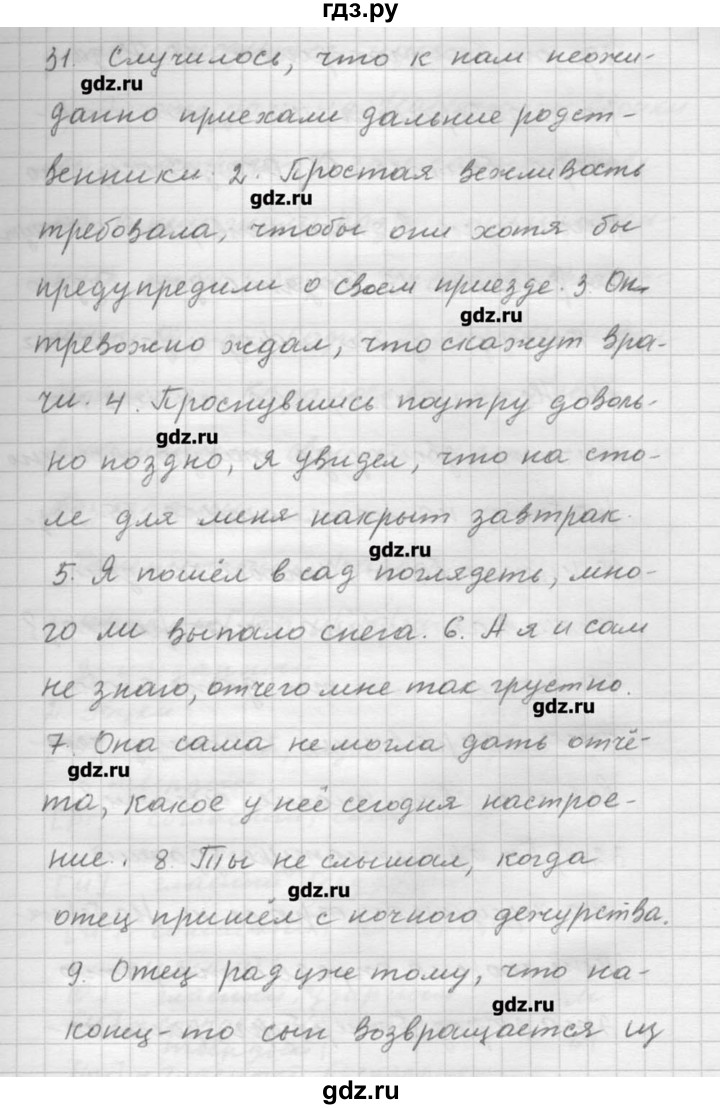 гдз.ру
31. Случилось, что к нам неожи-
gdz.ru
данно приехали дальние родст-
венники. 2. Простая вежливость
gdz.ru
требовала, чтобы они хотя бы
предупредили о своем приезде. 3. Он
gdz.ru
тревожно ждал, что скажут вра-
чи. 4. Проснувшись поутру доволь-
gdz.ru
но поздно, я увидел, что на сто-
ле для меня накрыт завтрак.
gdz.ru
5. Я пошёл в сад поглядеть, мно-
го ли выпало снега. 6. А я и сам
не знаю, отчего мне так грустно.
gdz.ru
7. Она сама не могла дать отчё-
gdz.ru
та, какое у неё сегодня настрое-
ние. 8. Ты не слышал, когда
gdz.ru
отец пришёл с ночного дежурства.
9. Отец рад уже тому, что на-
gdz.ru
конец-то сын возвращается из
gdz.ru